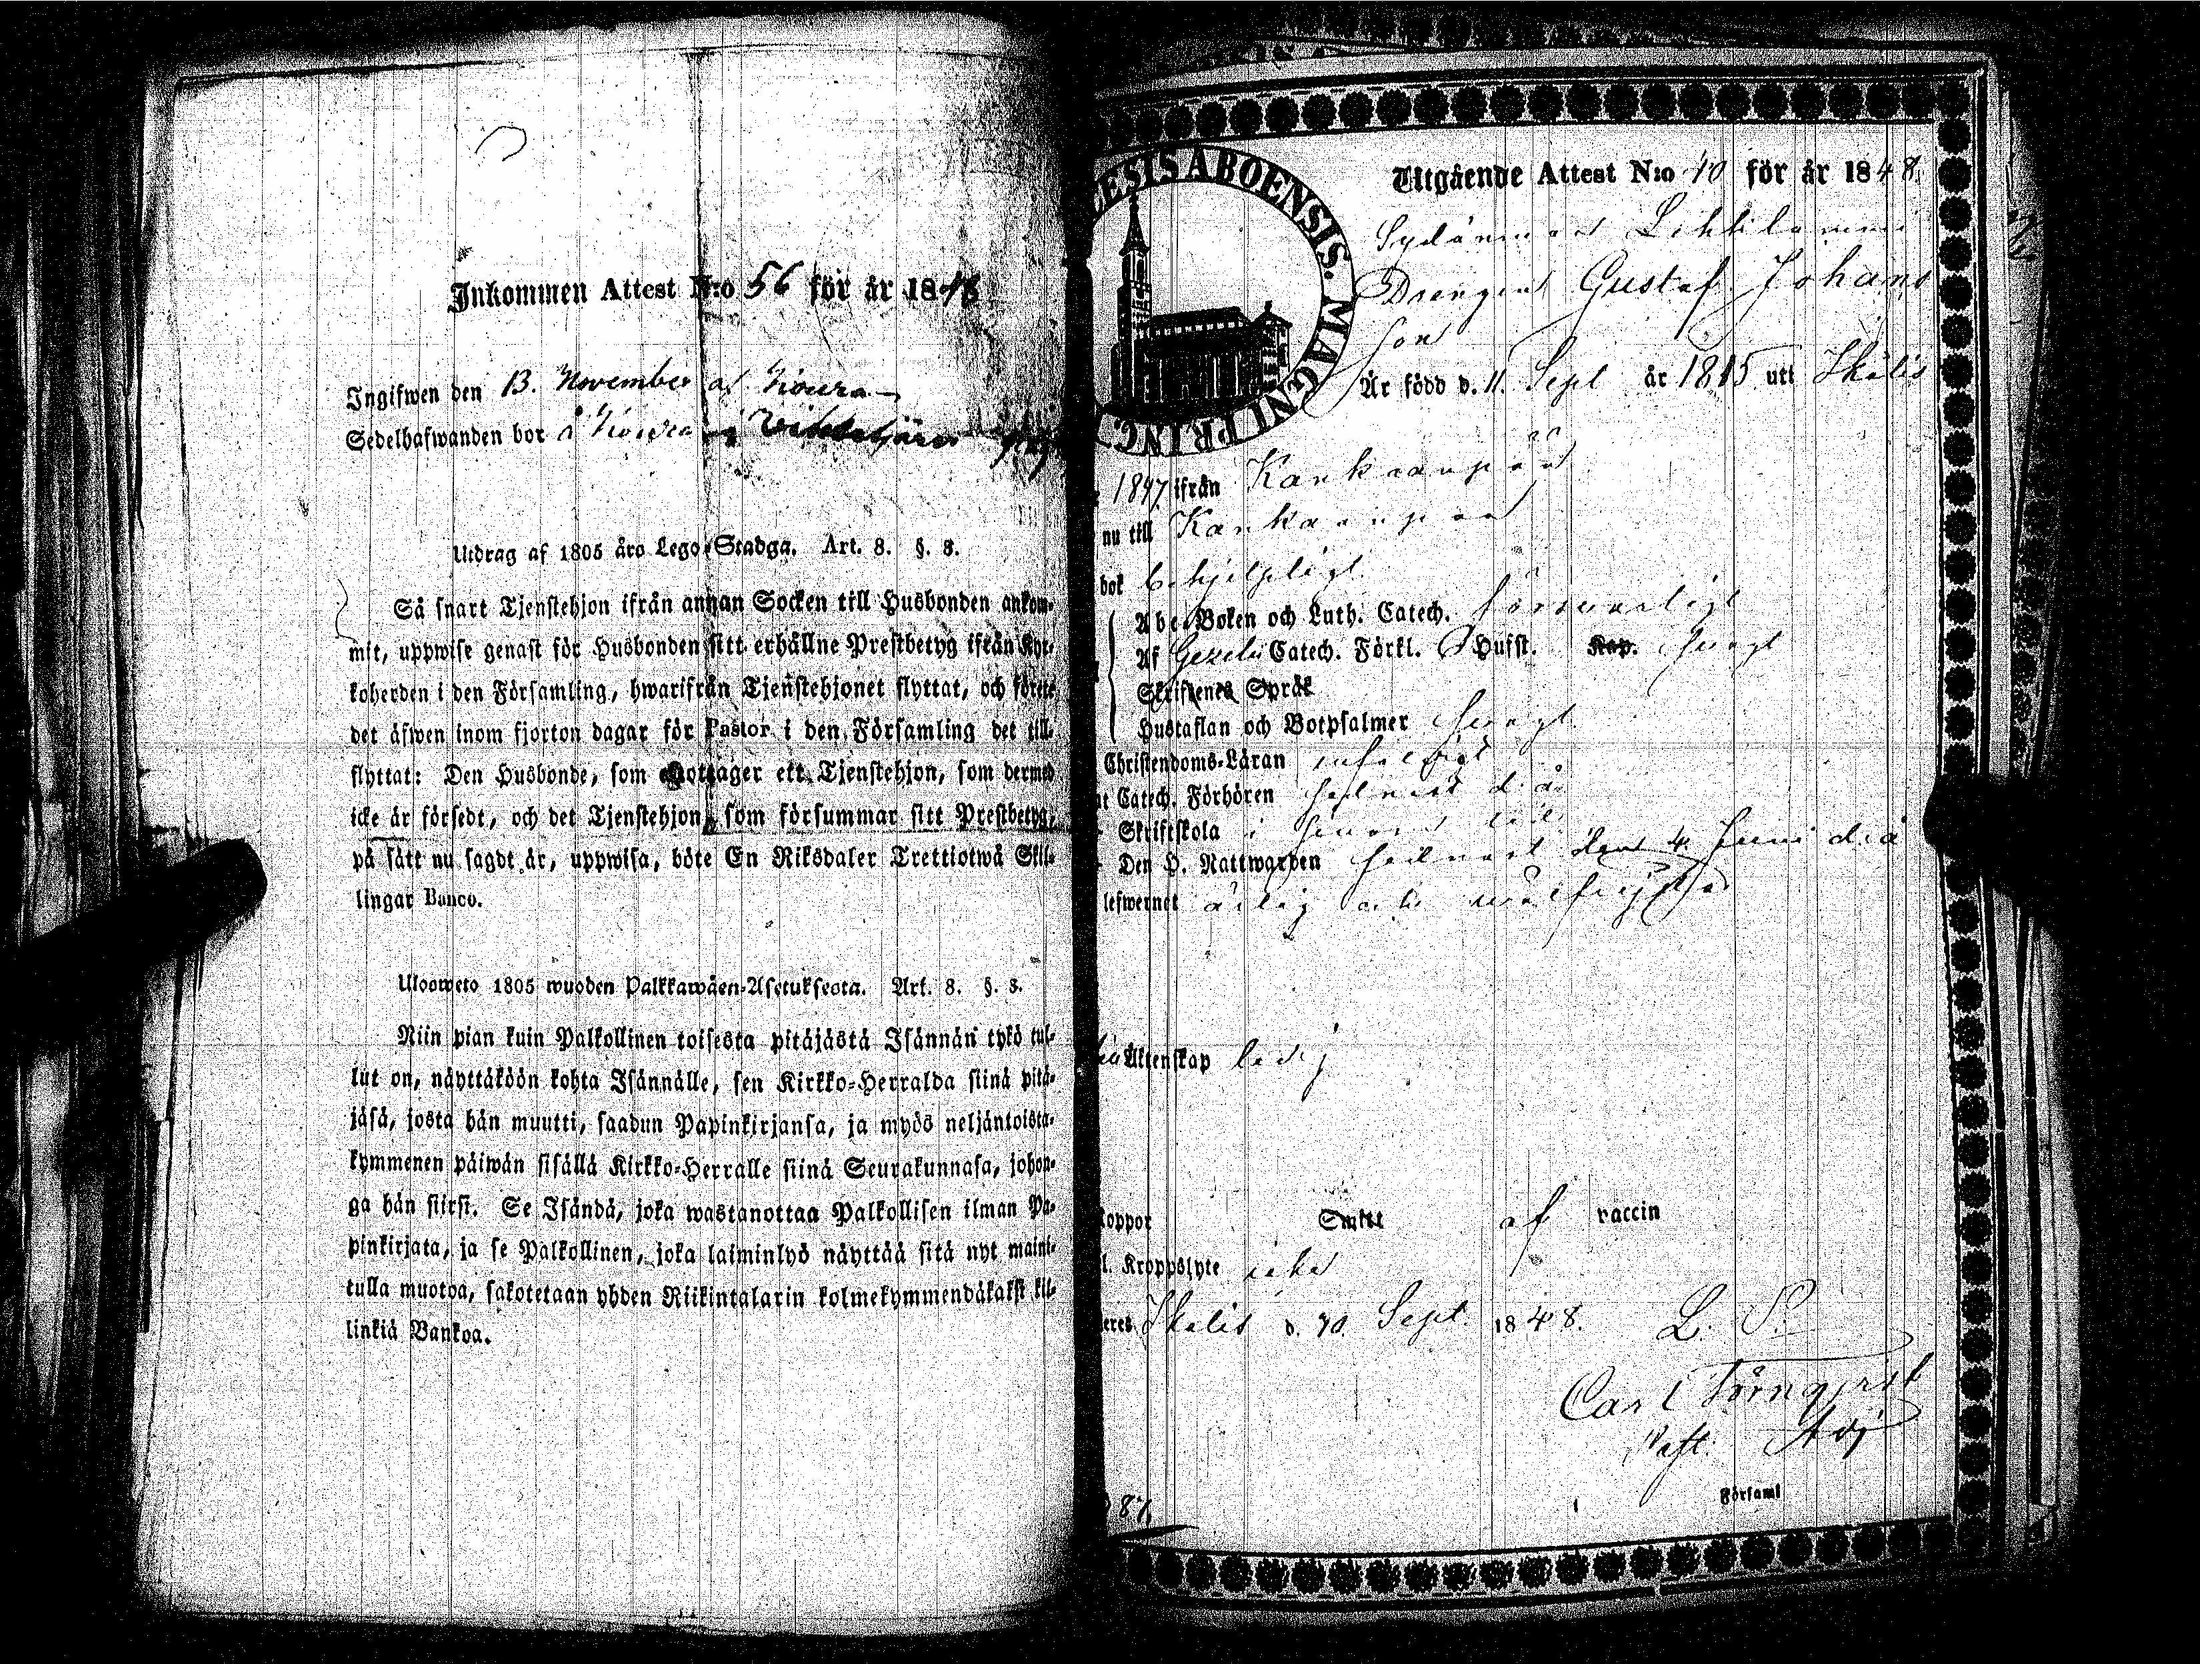 Inkommen Attest N:o 56 för år 1848
Ingifwen den 13. November af Koura
Sedelhafwanden bor å Koura
Utdrag af 1805 åro Lego-Stadga. Art. 8. §. 8.
Så snart Tjenstehjon ifrån annan Socken till Husbonden ankom-
mit, uppwise genast för Husbonden sitt erhållne Prestbetyg ifrån Kyr-
koherden i den Församling, hwarifrån Tjenstehjonet flyttat, och förete
det åfwen inom fjorton dagar för Pastor i den Församling det till-
flyttat: Den Husbonde, som mottager ett Tjenstehjon, som dermed
icke är försedt, och det Tjenstehjon, som försummar sitt Prestbetyg,
på sätt nu sagdt är, uppwisa, böte En Riksdaler Trettiotwå Skil-
lingar Banco.
Uloosweto 1805 wuoden Palkkawåen-Asetuksesta. Art. 8. §. 8.
Niin pian kuin Palkollinen toisesta pitäjästä Isännän tykö tul-
lut on, näyttäköön kohta Isännälle, sen Kirkko-Herralda siinä pitä-
jäsä, josta hän muutti, saadun Papinkirjansa, ja myös neljäntoista-
kymmenen päiwän sisällä Kirkko-Herralle siinä Seurakunnasa, johon-
ga hän siirsi. Se Isändä, joka wastanottaa Palkollisen ilman Pa-
pinkirjata, ja se Palkollinen, joka laiminlyö näyttää sitä nyt maini-
tulla muotoa, sakotetaan yhden Riikintalarin kolmekymmendäkaksi kil-
linkiä Bankoa.
ESIS ABOENSIS. MAGNI PRINC
Utgående Attest N:o 40 för år 1848.
Drengen Gustaf Johans
son
Är född d. 11. Sept år 1815 uti Ikalis
1847 ifrån Kankaanpää
nu till Kankaanpää
bok behjelpligt
Abc-Boken och Luth. Catech. försvarligt
Af Gezelii Catech. Förkl. Hufst. Kap. svagt
Skriftenes Språk
Hustaflan och Botpsalmer svagt
Christendoms-Läran enfaldigt
Catech. Förhören sednast d. å.
Skriftskola i
Den H. Nattwarden sednast den 4 Juni d. å
lefwernet ärlig och
Äktenskap ledig
koppor Smitt af vaccin
l. Kroppslyte icke
eres Ikalis d. 40. Sept. 1848. L. S.
Carl Törnqvist
Past. Adj
Församl
87.